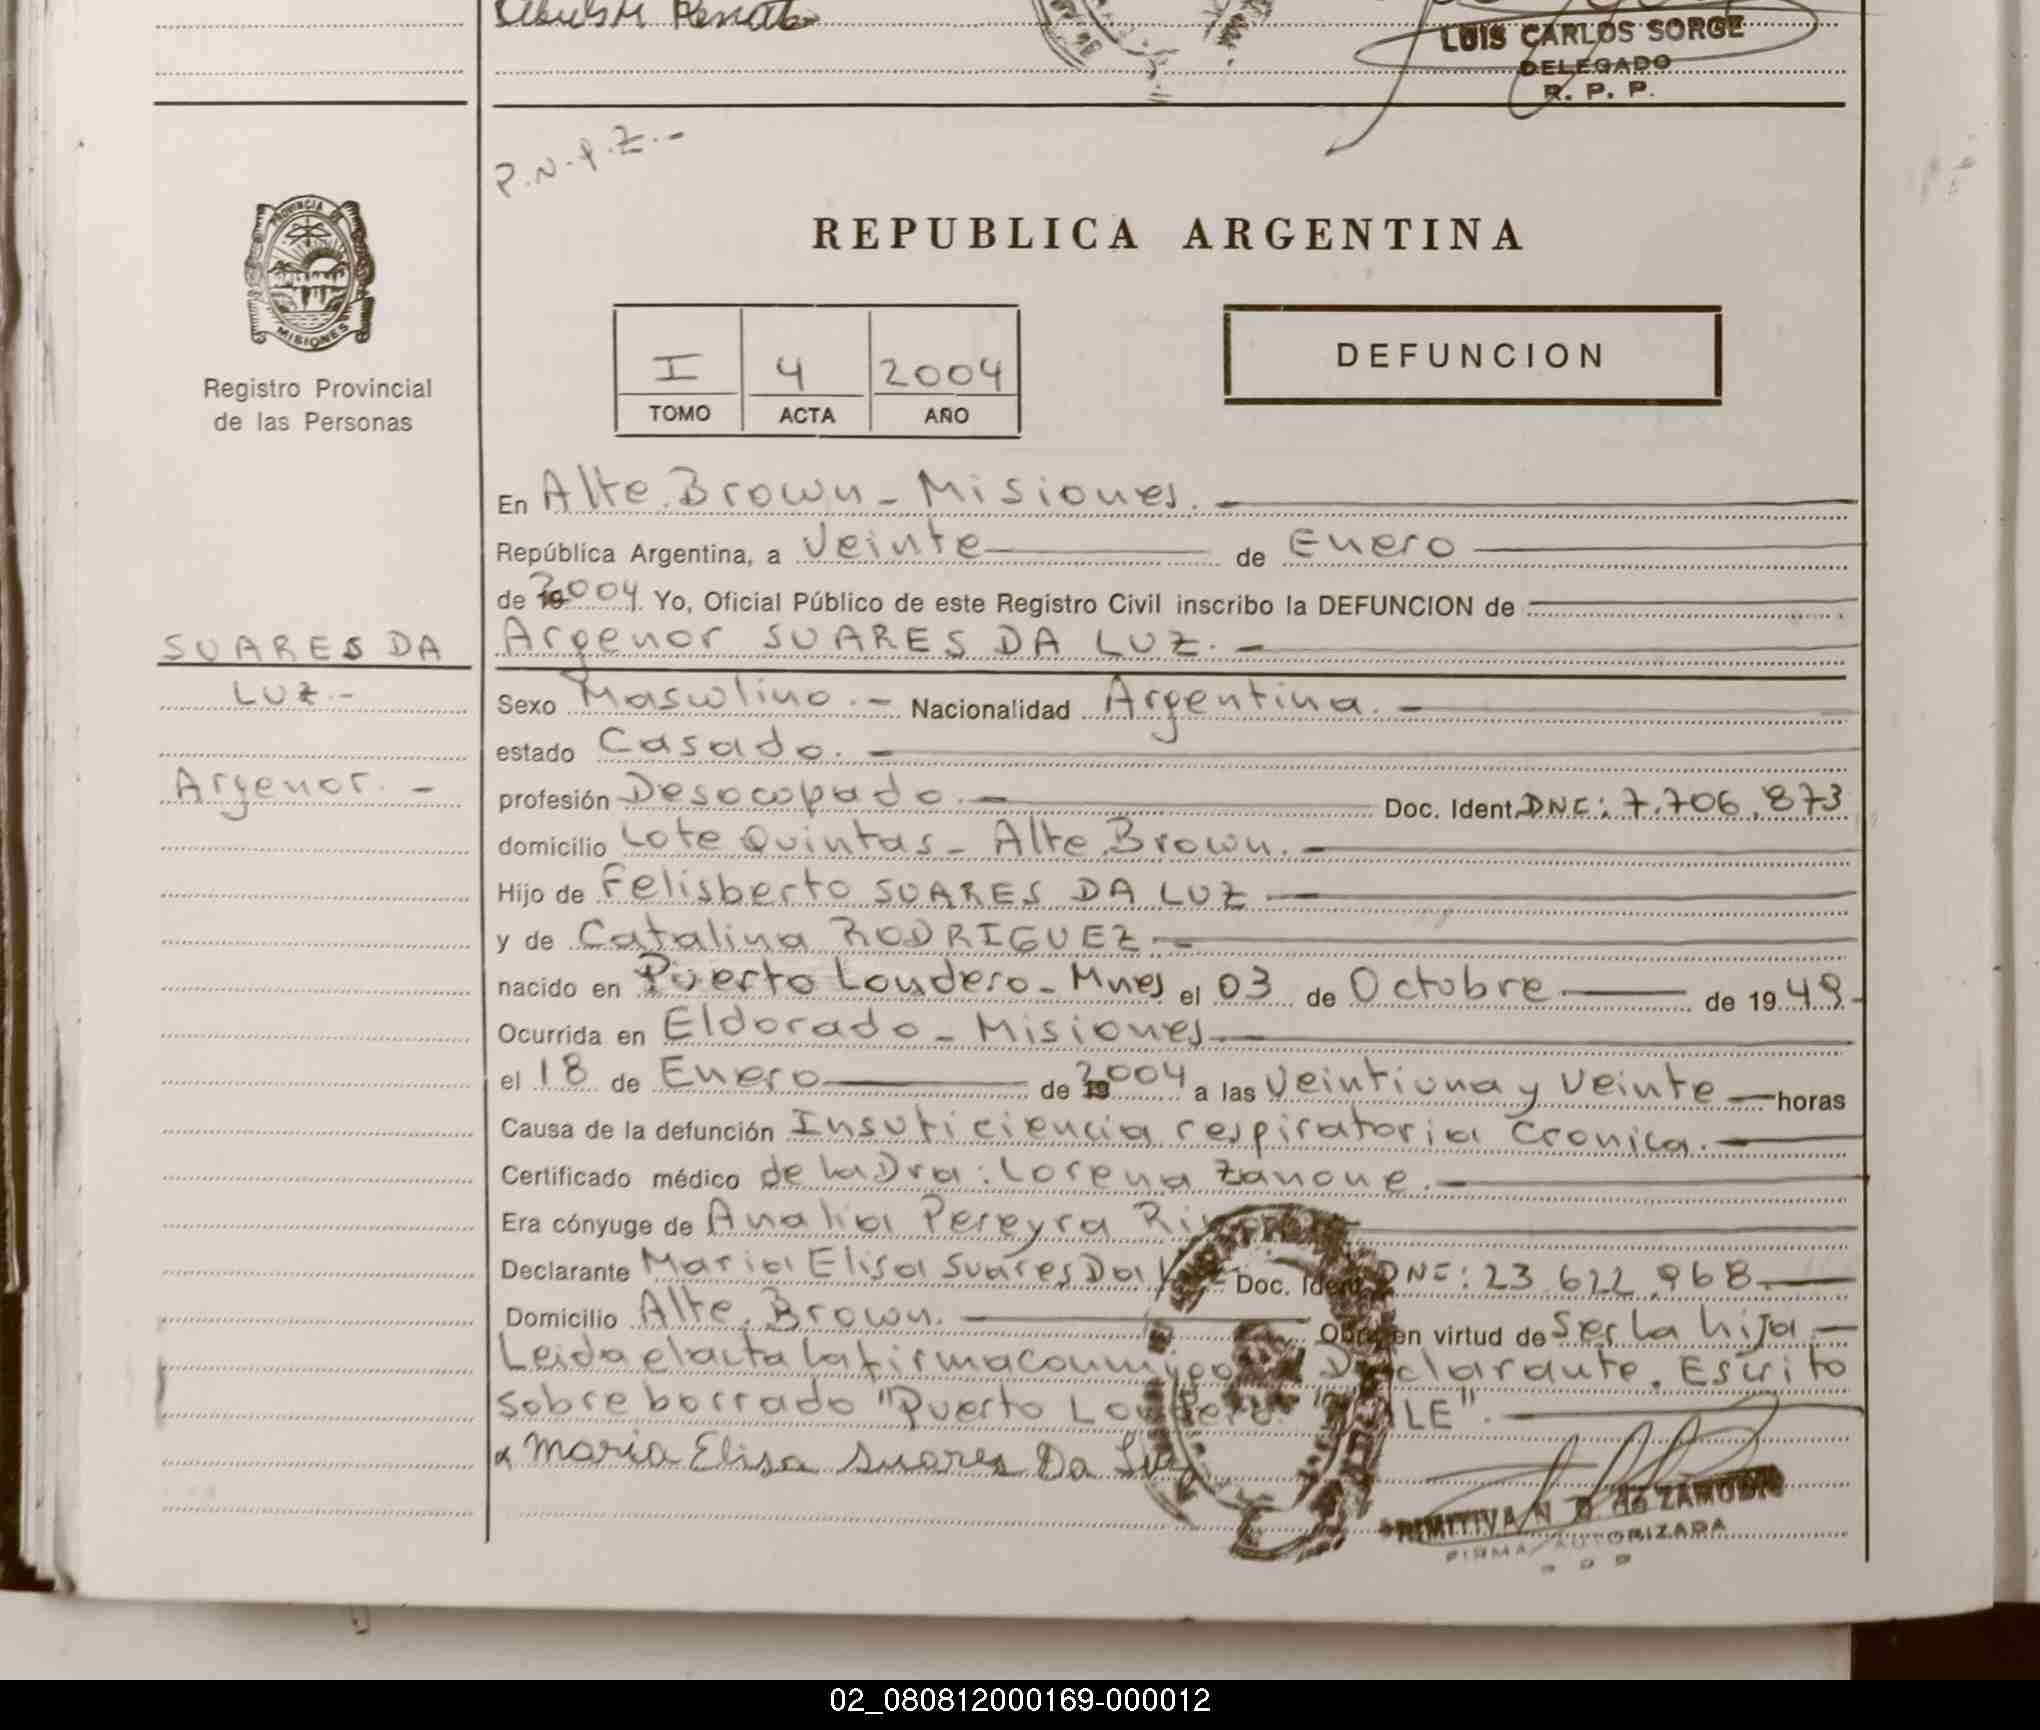 LUIS CARLOS SORGE
DELEGADO
R. P. P.
P.N.P.Z.-
PROVINCIA DE
MISIONES
Registro Provincial
de las Personas
REPUBLICA ARGENTINA
I 4 2004
TOMO ACTA AÑO
DEFUNCION
En Alte. Brown - Misiones.-
República Argentina, a Veinte de Enero
de 2004. Yo, Oficial Público de este Registro Civil inscribo la DEFUNCION de
SUARES DA
LUZ.-
Argenor.-
Argenor SUARES DA LUZ.-
Sexo Masculino.- Nacionalidad Argentina.-
estado Casado.-
profesión Desocupado.- Doc. Ident. DNI: 7.706.873
domicilio Lote Quintas - Alte. Brown.-
Hijo de Felisberto SUARES DA LUZ
y de Catalina RODRIGUEZ-
nacido en Puerto Londero - Mnes el 03 de Octubre de 1949.-
Ocurrida en Eldorado - Misiones
el 18 de Enero de 2004 a las Veintiuna y Veinte horas
Causa de la defunción Insuficiencia respiratoria Cronica.-
Certificado médico de la Dra: Lorena Zanone.-
Era cónyuge de Analia Pereyra
Declarante Maria Elisa Suares Da Doc. Ident. DNI: 23.622.968.
Domicilio Alte. Brown. Obra en virtud de Ser la hija.-
Leida el acta la firma conmigo Declarante. Escrito
sobre borrado "Puerto Londero" "VALE".-
x Maria Elisa Suares Da Luz
PRIMITIVA N D de
FIRMA AUTORIZADA
02_080812000169-000012